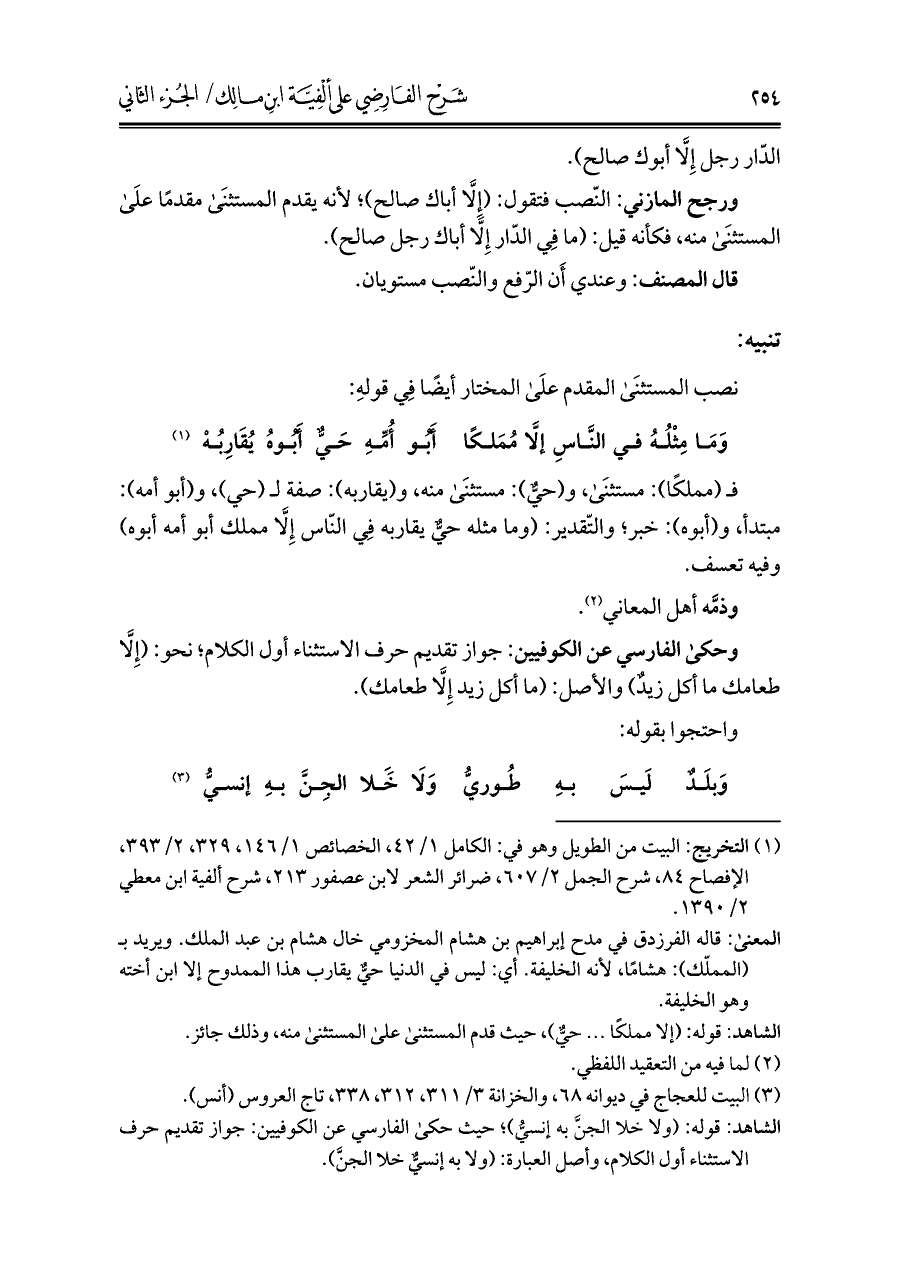 ٢٥٤ شرح الفارضي على ألفية ابن مالك/ الجزء الثاني
الدّار رجل إِلَّا أبوك صالح).
ورجح المازني: النّصب فتقول: (إِلَّا أباك صالح)؛ لأنه يقدم المستثنَىٰ مقدمًا علَىٰ
المستثنَىٰ منه، فكأنه قيل: (ما فِي الدّار إِلَّا أباك رجل صالح).
قال المصنف: وعندي أَن الرّفع والنّصب مستويان.
تنبيه:
نصب المستثنَىٰ المقدم علَىٰ المختار أيضًا فِي قولهِ:
وَمَا مِثْلُهُ في النَّاسِ إلَّا مُمَلكًا أَبُو أُمِّهِ حَيٌّ أَبُوهُ يُقَارِبُهْ (١)
فـ (مملكًا): مستثنَىٰ، و(حيٌّ): مستثنَىٰ منه، و(يقاربه): صفة لـ (حي)، و(أبو أمه):
مبتدأ، و(أبوه): خبر؛ والتّقدير: (وما مثله حيٌّ يقاربه فِي النّاس إِلَّا مملك أبو أمه أبوه)
وفيه تعسف.
وذمَّه أهل المعاني(٢).
وحكىٰ الفارسي عن الكوفيين: جواز تقديم حرف الاستثناء أول الكلام؛ نحو: (إِلَّا
طعامك ما أكل زيدٌ) والأصل: (ما أكل زيد إِلَّا طعامك).
واحتجوا بقوله:
وَبلَدٌ لَيسَ بهِ طُوريُّ وَلَا خَلا الجِنَّ بهِ إنسيُّ (٣)
(١) التخريج: البيت من الطويل وهو في: الكامل ١/ ٤٢، الخصائص ١/ ١٤٦، ٣٢٩، ٢/ ٣٩٣،
الإفصاح ٨٤، شرح الجمل ٢/ ٦٠٧، ضرائر الشعر لابن عصفور ٢١٣، شرح ألفية ابن معطي
٢/ ١٣٩٠.
المعنىٰ: قاله الفرزدق في مدح إبراهيم بن هشام المخزومي خال هشام بن عبد الملك. ويريد بـ
(المملّك): هشامًا، لأنه الخليفة. أي: ليس في الدنيا حيٌّ يقارب هذا الممدوح إلا ابن أخته
وهو الخليفة.
الشاهد: قوله: (إلا مملكًا ... حيٌّ)، حيث قدم المستثنىٰ علىٰ المستثنىٰ منه، وذلك جائز.
(٢) لما فيه من التعقيد اللفظي.
(٣) البيت للعجاج في ديوانه ٦٨، والخزانة ٣/ ٣١١، ٣١٢، ٣٣٨، تاج العروس (أنس).
الشاهد: قوله: (ولا خلا الجنَّ به إنسيُّ)؛ حيث حكىٰ الفارسي عن الكوفيين: جواز تقديم حرف
الاستثناء أول الكلام، وأصل العبارة: (ولا به إنسيٌّ خلا الجنَّ).